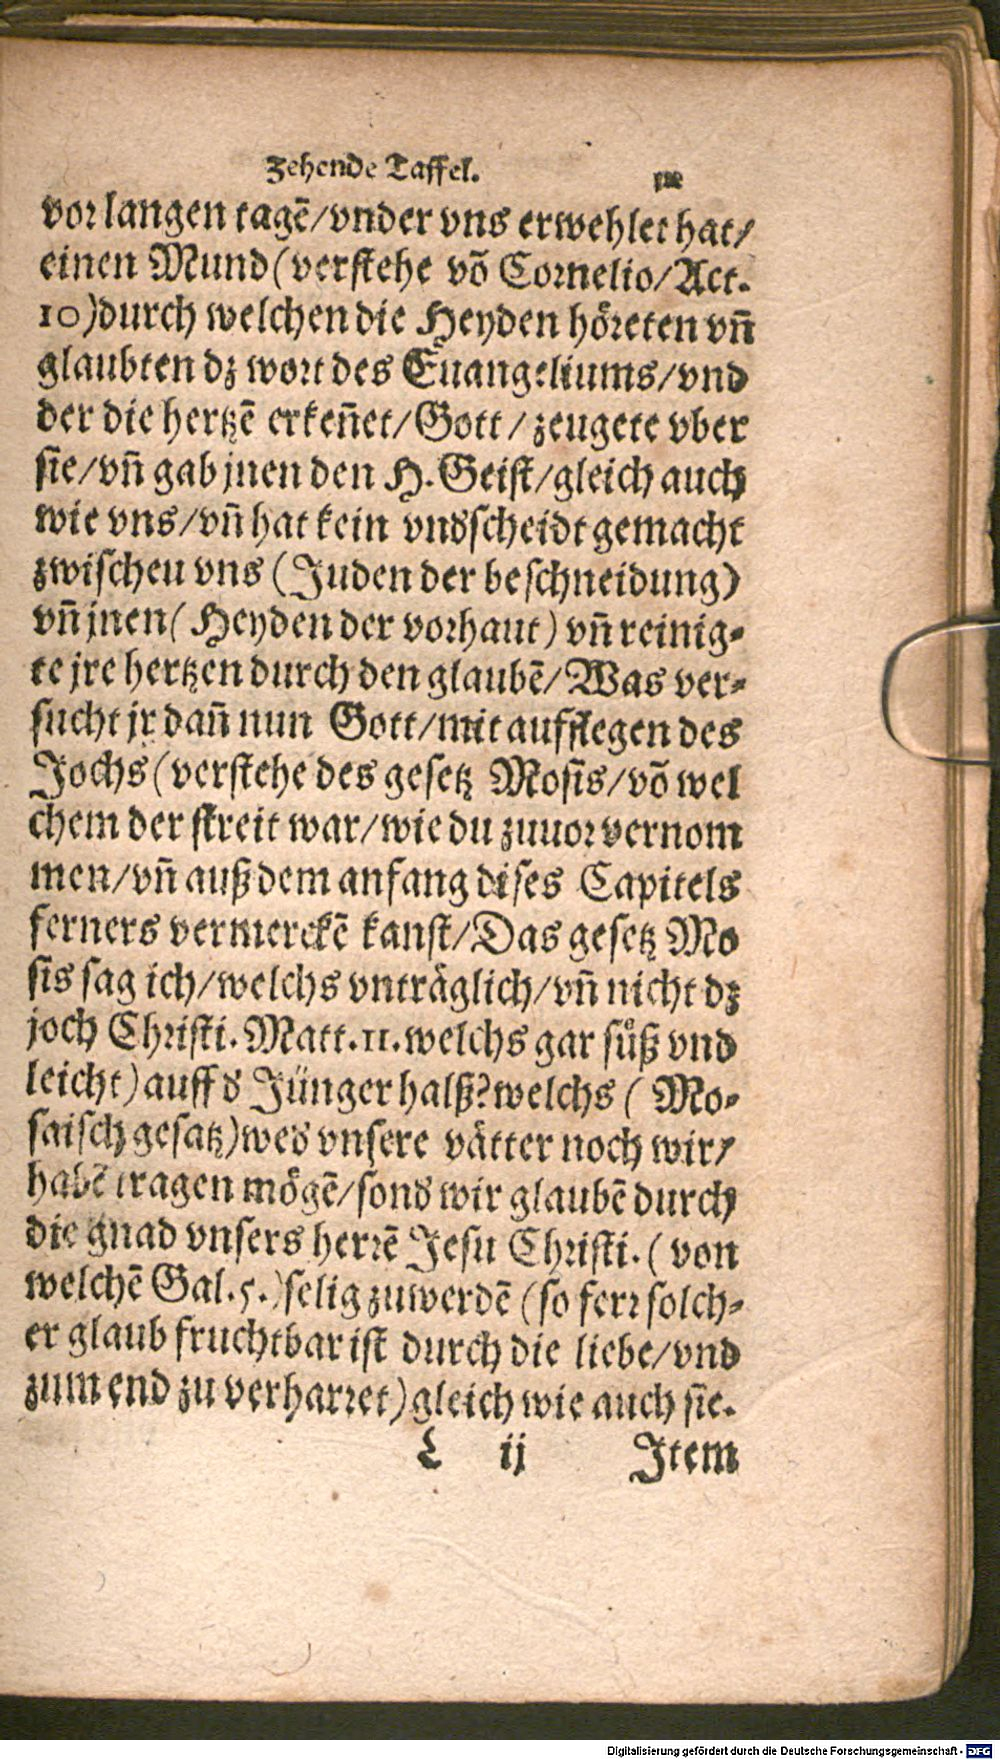 Zehende Taffel.
vor langen tagē/vnder vns erwehlet hat/
einen Mund (verstehe võ Cornelio/Act.
10)durch welchen die Heyden höreten vñ
glaubten dz wort des Euangeliums/vnd
der die hertzē erkeñet/Gott/zeugete vber
sie/vñ gab jnen den H. Geist/gleich auch
wie vns/vñ hat kein vndscheidt gemacht
zwischeu vns (Juden der beschneidung)
vñ jnen (Heyden der vorhaut) vñ reinig-
te jre hertzen durch den glaubē/Was ver-
sucht jr dañ nun Gott/mit aufflegen des
Jochs (verstehe des gesetz Mosis/võ wel
chem der streit war/wie du zuuor vernom
men/vñ auß dem anfang dises Capitels
ferners vermerckē kanst/Das gesetz Mo
sis sag ich/welchs vnträglich/vñ nicht dz
joch Christi. Matt. 11. welchs gar süß vnd
leicht) auff d Jünger halß? welchs (Mo-
saisch gesatz) wed vnsere vätter noch wir/
habē tragen mögē/sond wir glaubē durch
die gnad vnsers herrē Jesu Christi. (von
welchē Gal. 5.) selig zuwerdē (so ferr solch-
er glaub fruchtbar ist durch die liebe/vnd
zum end zu verharret) gleich wie auch sie.
L ij Item
Digitalisierung gefördert durch die Deutsche Forschungsgemeinschaft - DFG